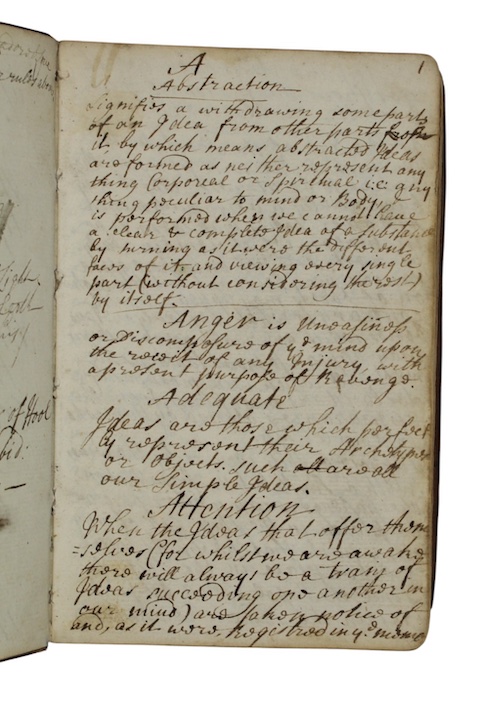 1
A
Abstraction
signifies a withdrawing some parts
of an Idea from other parts
it by which means abstracted Ideas
are formed as neither represent any
thing Corporeal or Spiritual i:e: any
thing peculiar to mind or Body, &
is performed when we cannot have
a clear & complete Idea of a substance
by turning as it were the different
faces of it, and viewing every single
part (without considering the rest)
by itself.
Anger is Uneasiness
or Discomposure of ye mind upon
the receit of any Injury, with
a present purpose of Revenge.
Adequate
Ideas are those which perfect
ly represent their Archetypes
or Objects. such all are all
our Simple Ideas.
Attention
When the Ideas that offer them
=selves (for whilst we are awake
there will always be a train of
Ideas succeeding one another in
our mind) are taken notice of
and, as it were, Registred in ye memo